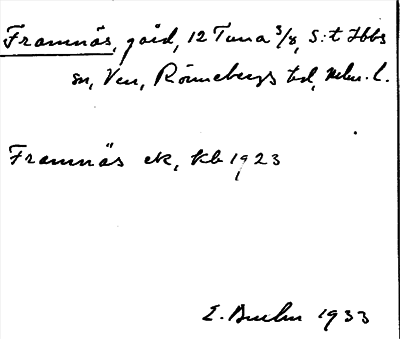 Framnäs, gård, 12 Tuna 3/8, S:t Ibbs
sn, Ven, Rönnebergs hd, Mlm. l.
Framnäs ek, kb 1923
E. 1933